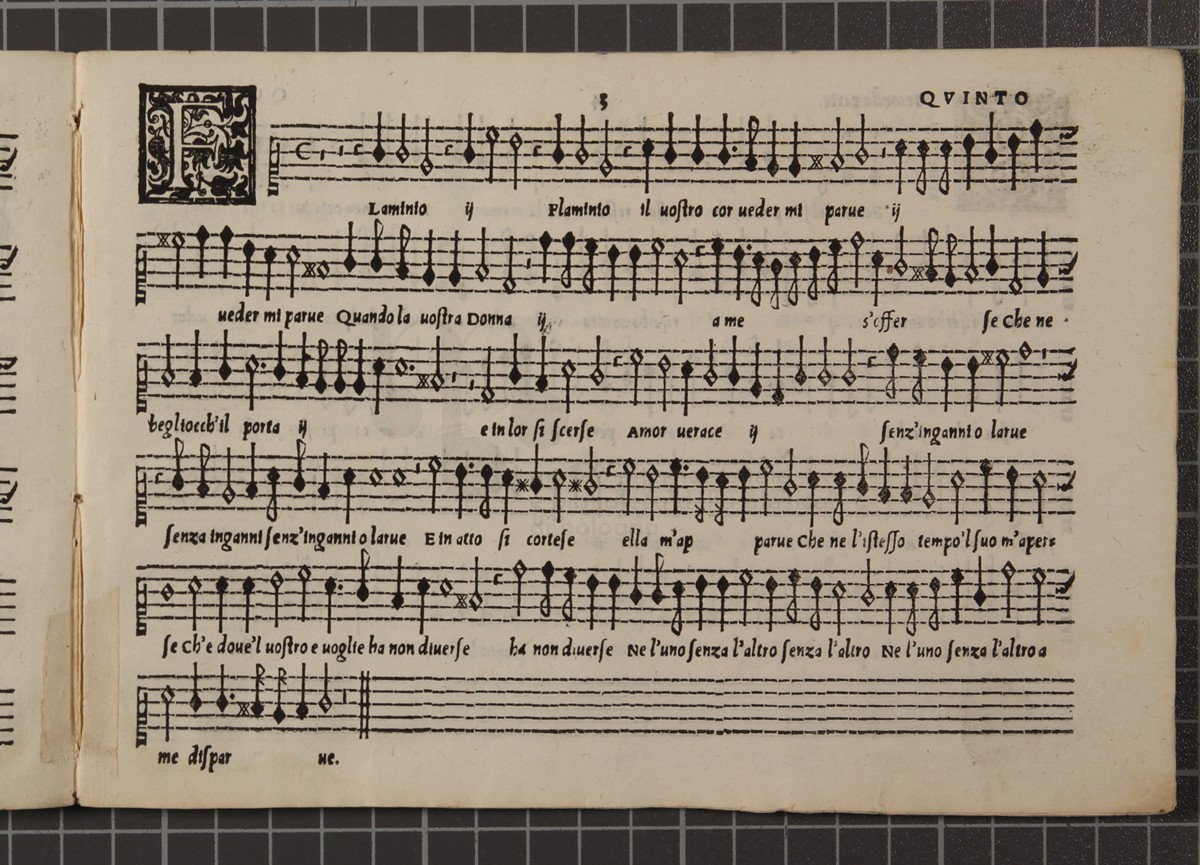 3 QVINTO
F Laminio ij Flaminio il uoſtro cor ueder mi parue ij
ueder mi parue Quando la uoſtra Donna ij a me s'offer ſe Che ne
begliocch'il porta ij e in lor ſi ſcerſe Amor uerace ij ſenz'inganni o larue
ſenza inganni ſenz'inganni o larue E in atto ſi corteſe ella m'ap parue Che ne l'iſteſſo tempo'l ſuo m'aper=
ſe Ch'e doue'l uoſtro e uoglie ha non diuerſe ha non diuerſe Ne l'uno ſenza l'altro ſenza l'altro Ne l'uno ſenza l'altro a
me diſpar ue.